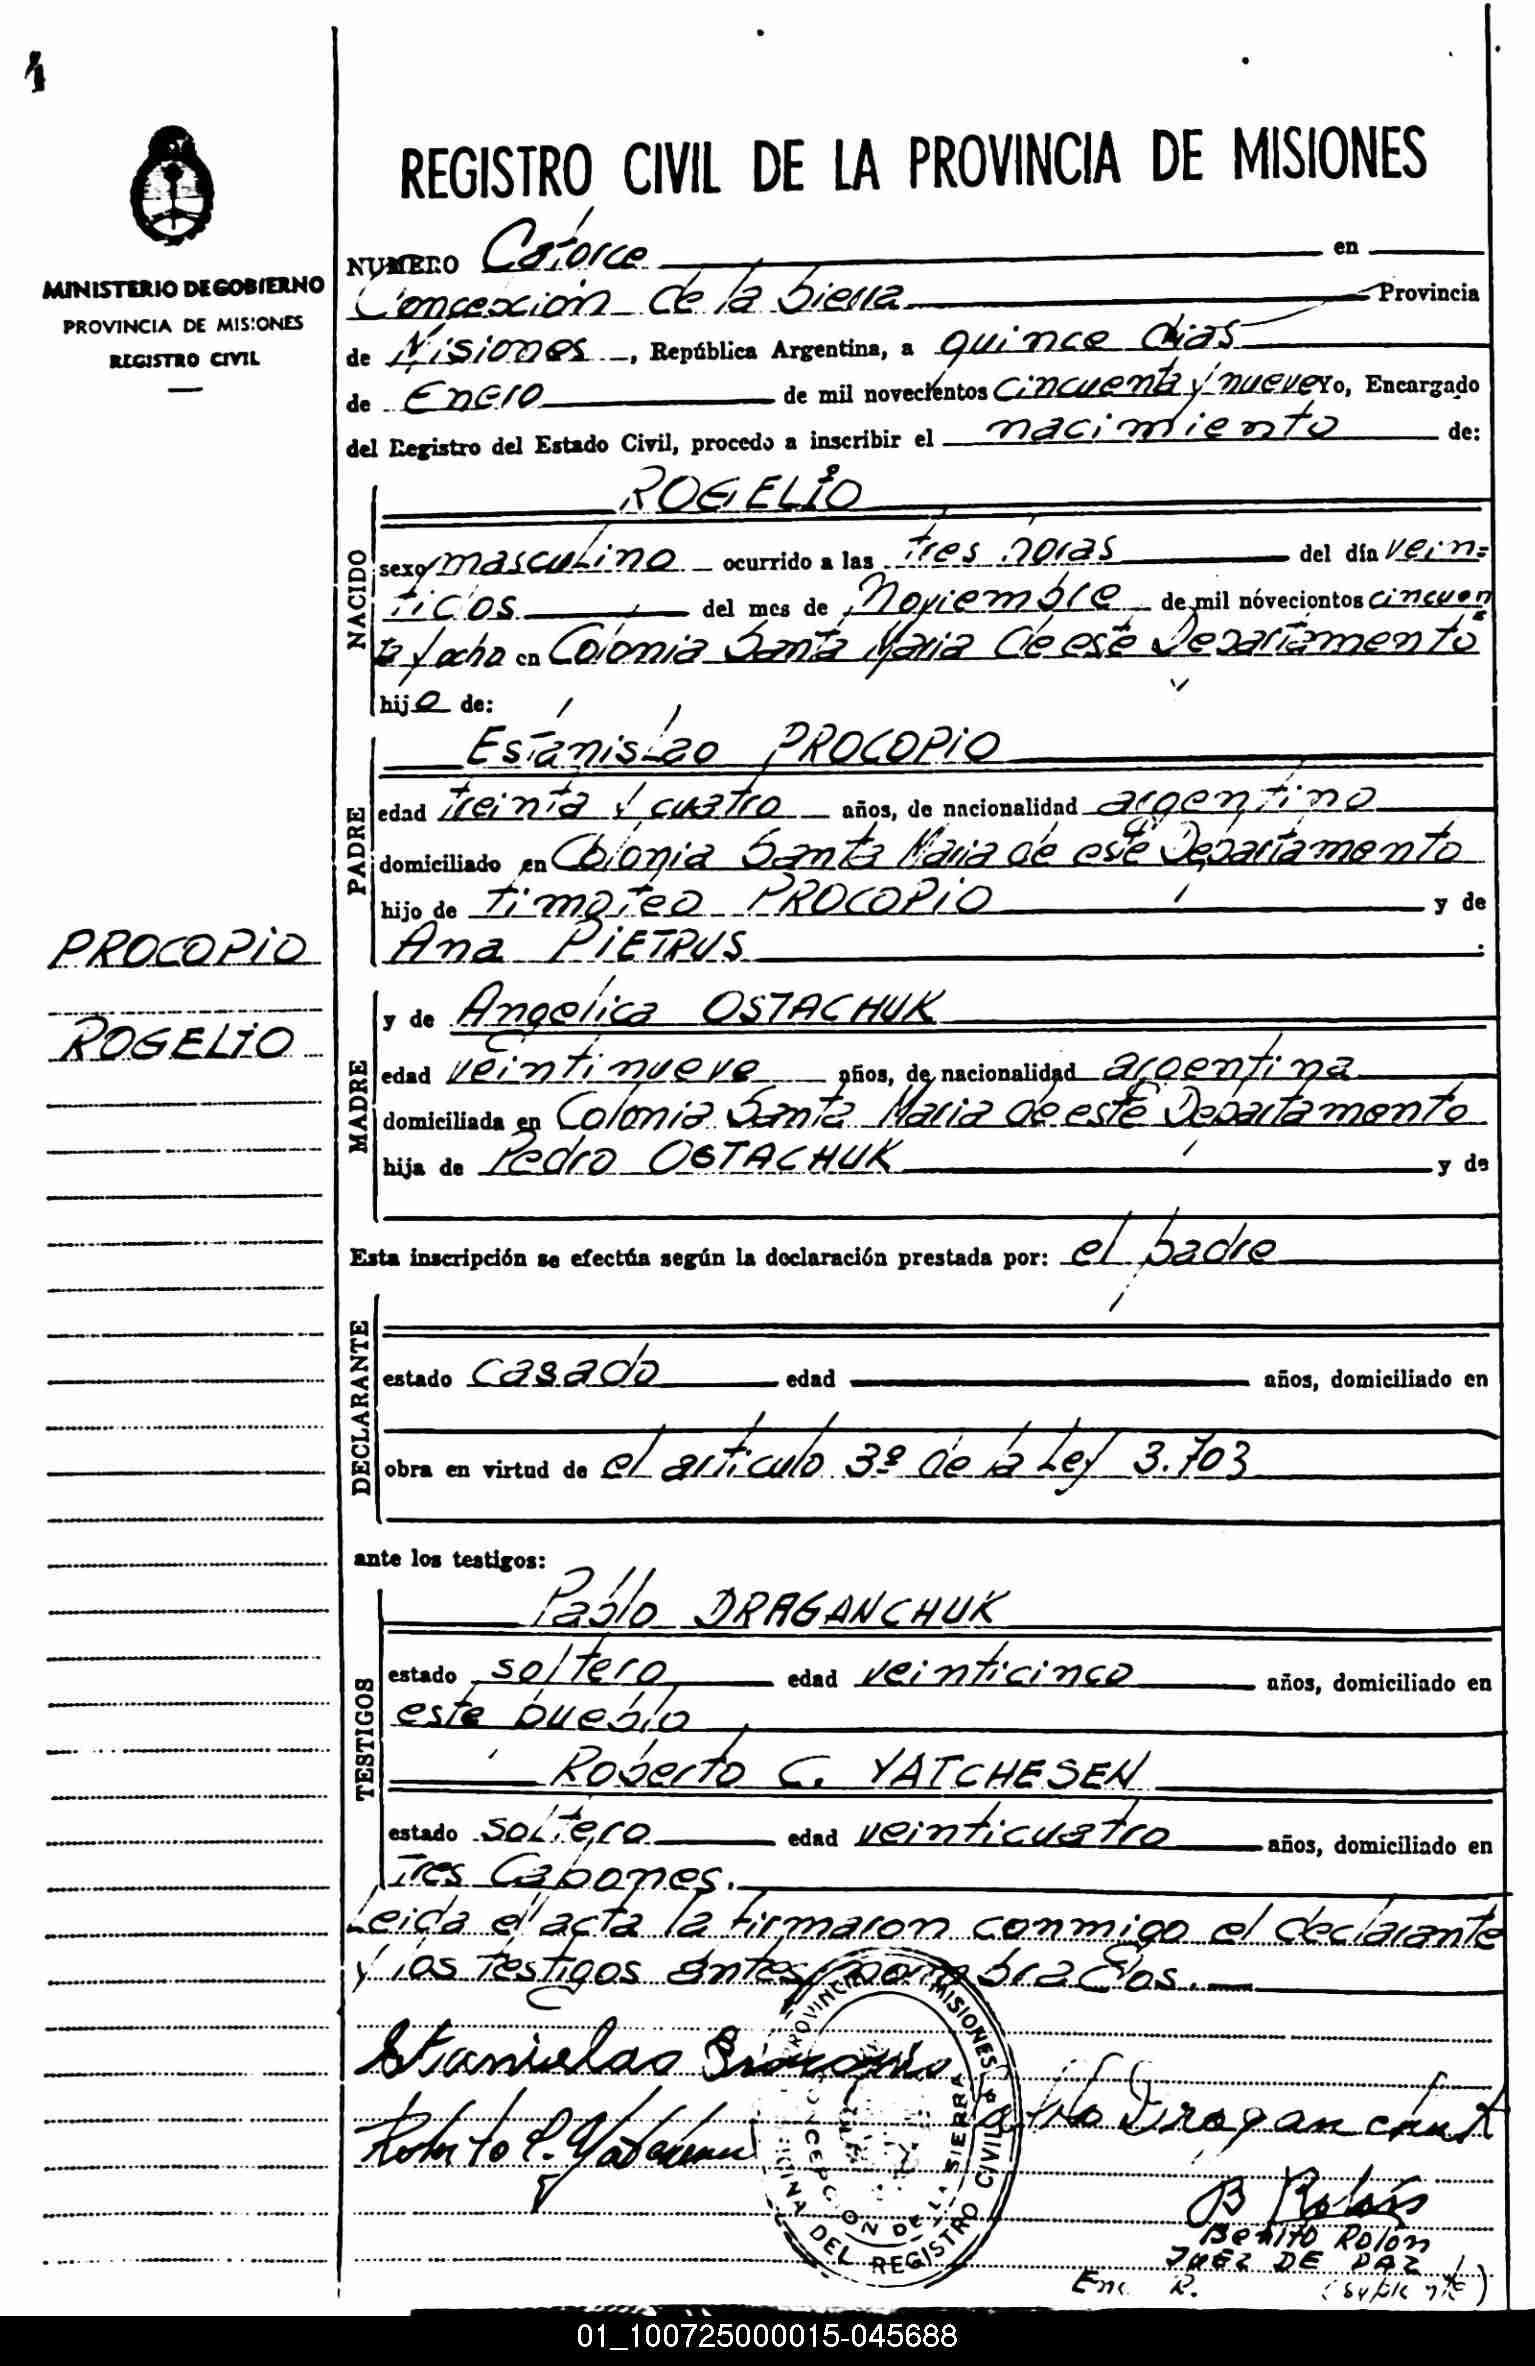 REGISTRO CIVIL DE LA PROVINCIA DE MISIONES
MINISTERIO DE GOBIERNO
PROVINCIA DE MISIONES
REGISTRO CIVIL
NUMERO Catorce en
Concepción de la Sierra Provincia
de Misiones, República Argentina, a quince dias
de Enero de mil novecientos cincuenta y nueve Yo, Encargado
del Registro del Estado Civil, procedo a inscribir el nacimiento de:
NACIDO
ROGELIO
sexo masculino ocurrido a las tres horas del día vein=
ticios del mes de Noviembre de mil novecientos cincuen
ta y ocho en Colonia Santa Maria de este Departamento
hijo de:
PADRE
Estanislao PROCOPIO
edad treinta y cuatro años, de nacionalidad argentino
domiciliado en Colonia Santa Maria de este Departamento
hijo de Timoteo PROCOPIO y de
Ana PIETRUS
PROCOPIO
ROGELIO
MADRE
y de Angelica OSTACHUK
edad veintinueve años, de nacionalidad argentina
domiciliada en Colonia Santa Maria de este Departamento
hija de Pedro OSTACHUK y de
Esta inscripción se efectúa según la declaración prestada por: el padre
DECLARANTE
estado casado edad años, domiciliado en
obra en virtud de el artículo 3º de la Ley 3.703
ante los testigos:
TESTIGOS
Pablo DRAGANCHUK
estado soltero edad veinticinco años, domiciliado en
este pueblo
Roberto C. YATCHESEN
estado soltero edad veinticuatro años, domiciliado en
Tres Capones.
Leida el acta la firmaron conmigo el declarante
y los testigos antes nombrados.
Stanislao Procopio
Pablo Draganchuk
Roberto C. Yatchesen
PROVINCIA DE MISIONES
OFICINA DEL REGISTRO CIVIL
CONCEPCION DE LA SIERRA
B Rolón
Benito Rolón
JUEZ DE PAZ
Enc. R. (Suplente)
01_100725000015-045688